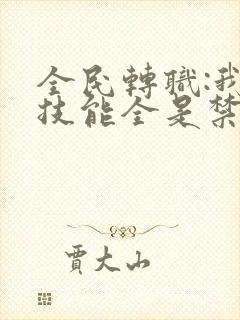 全民轉職:我
技能全是禁
賈大山